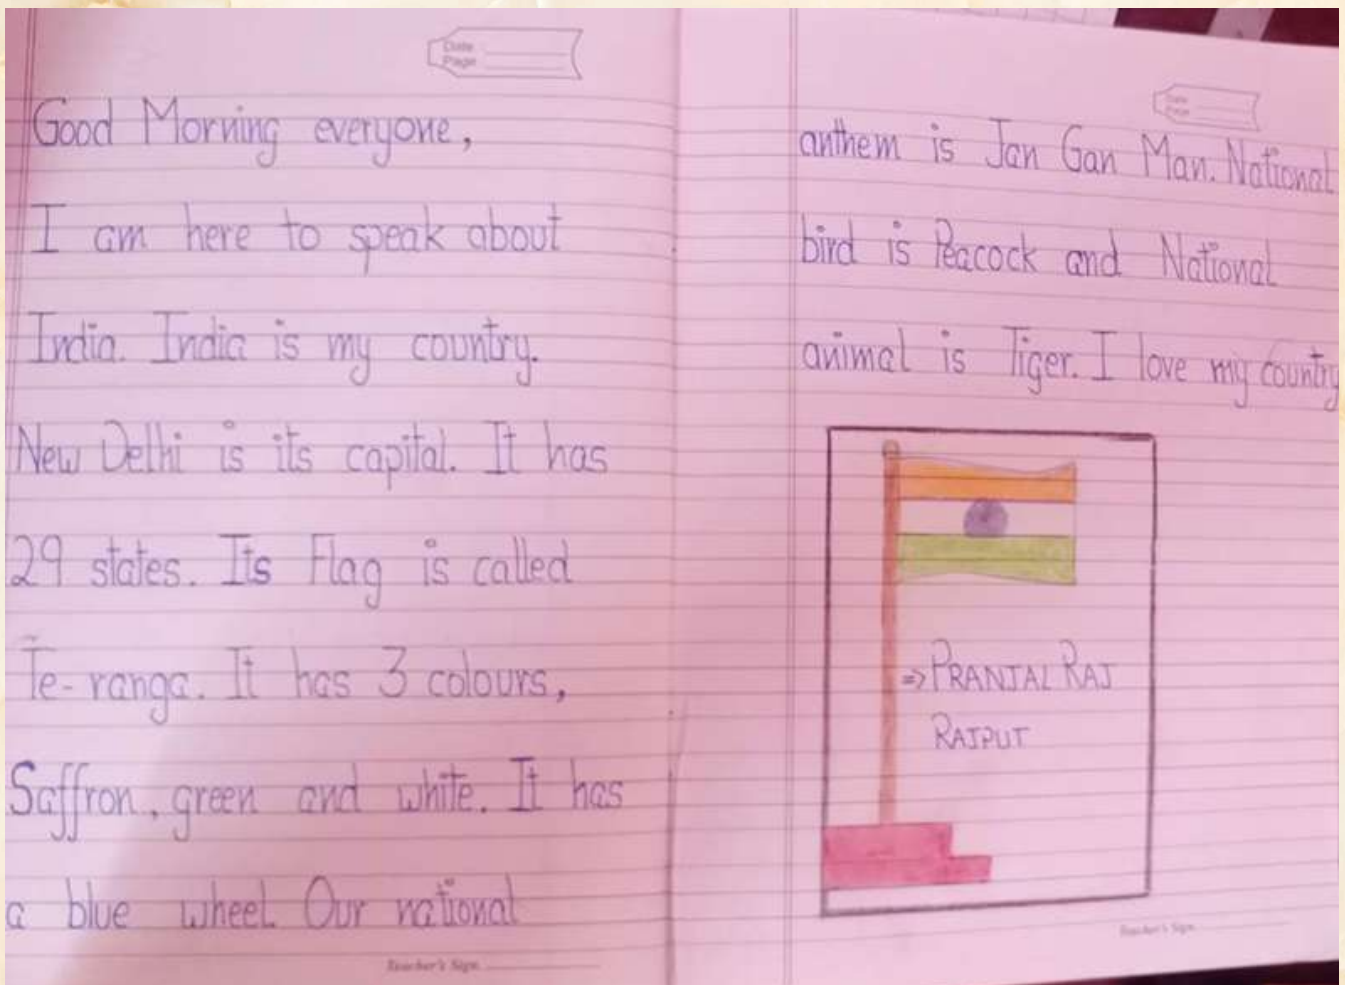 Date
Page
Good Morning everyone,
I am here to speak about
India. India is my country.
New Delhi is its capital. It has
29 states. Its Flag is called
Te-ranga. It has 3 colours,
Saffron, green and white. It has
a blue wheel. Our national
Teacher's Sign
Date
Page
anthem is Jan Gan Man. National
bird is Peacock and National
animal is Tiger. I love my country
=> PRANJAL RAJ
RAJPUT
Teacher's Sign